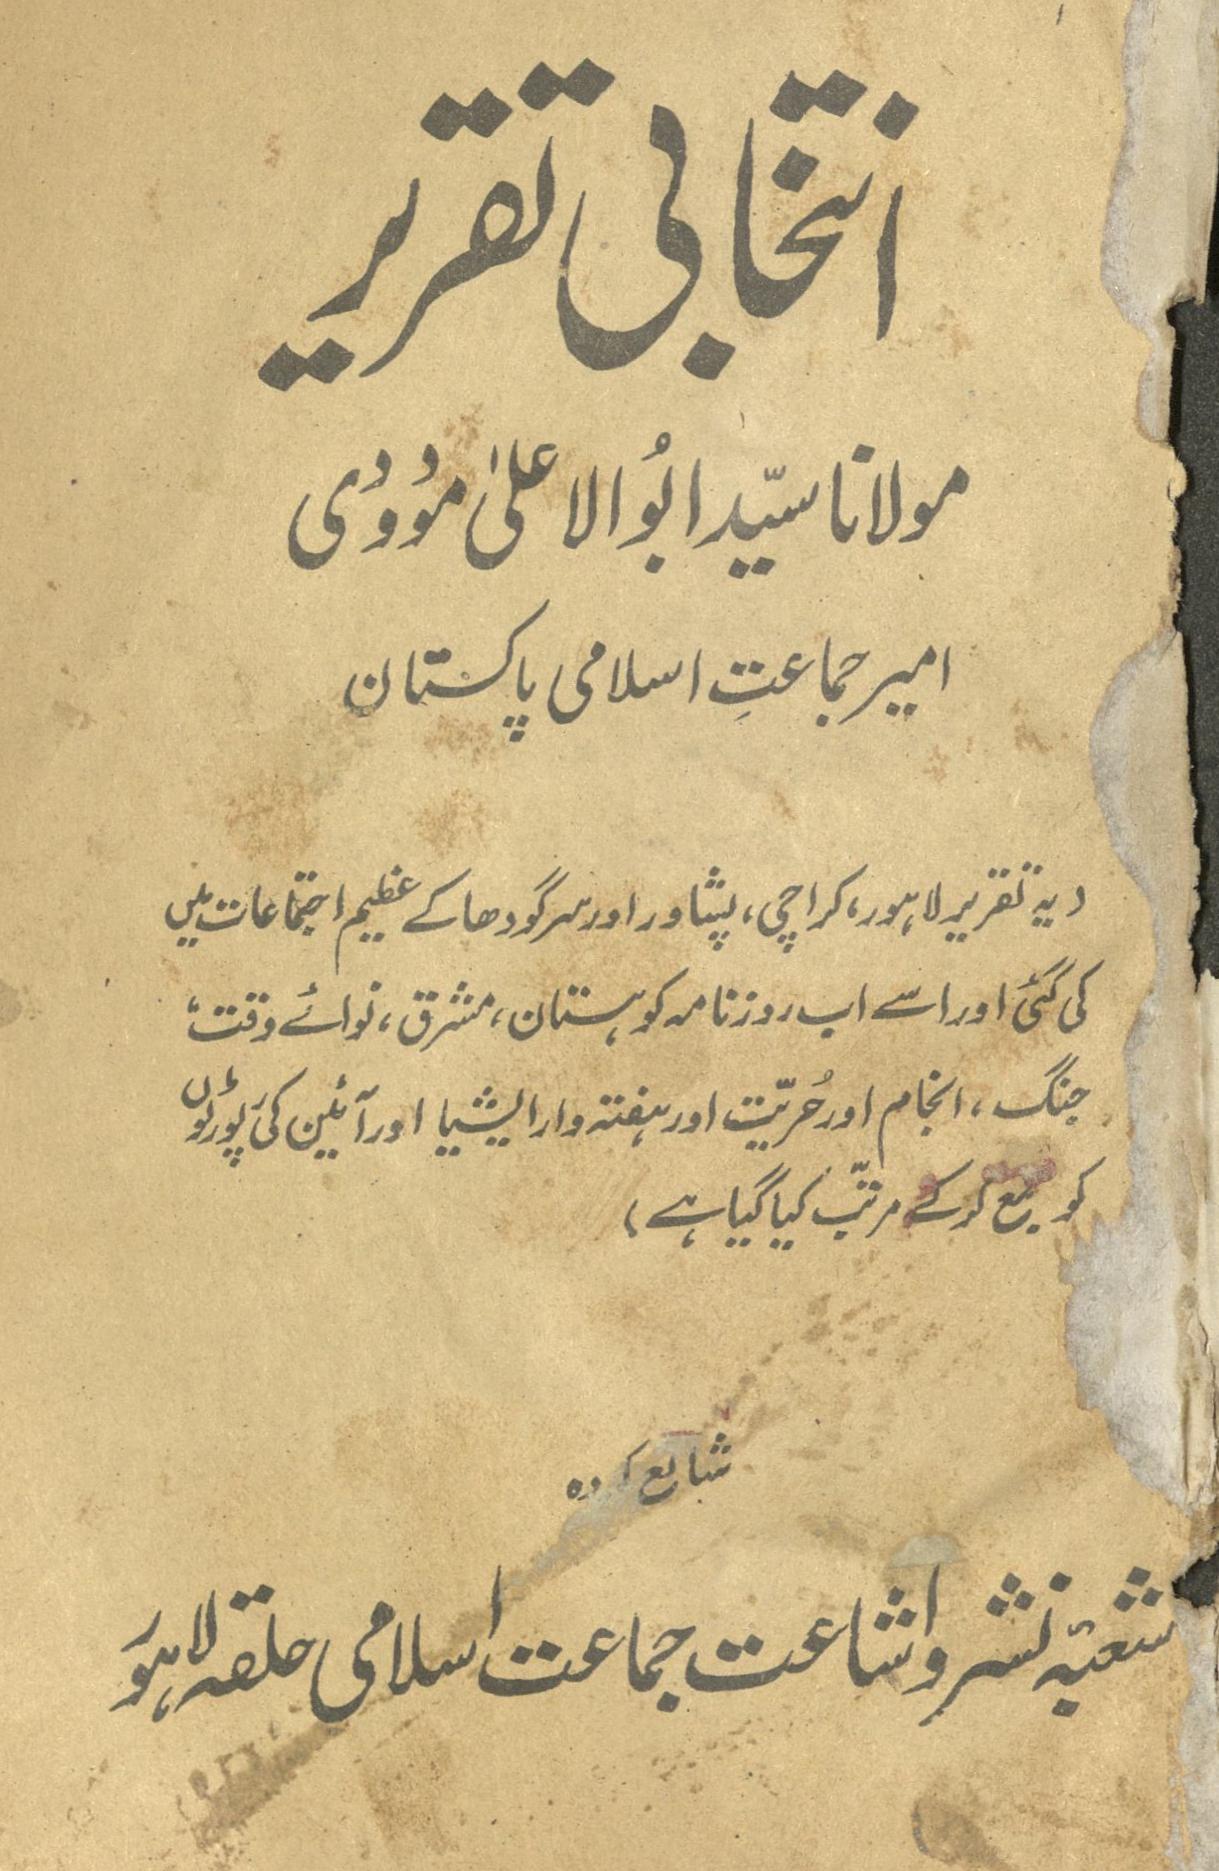 انتخابی تقریر
مولانا سیّد ابُوالاعلیٰ مودُودی
امیر جماعتِ اسلامی پاکستان
(یہ تقریر لاہور، کراچی، پشاور اور سرگودھا کے عظیم اجتماعات میں
کی گئی اور اسے اب روزنامہ کوہستان، مشرق، نوائے وقت،
جنگ، انجام اور حُریّت اور ہفتہ وار ایشیا اور آئین کی رپورٹوں
کو جمع کر کے مرتّب کیا گیا ہے)
شایع کردہ
شعبۂ نشر و اشاعت جماعت اسلامی حلقہ لاہور